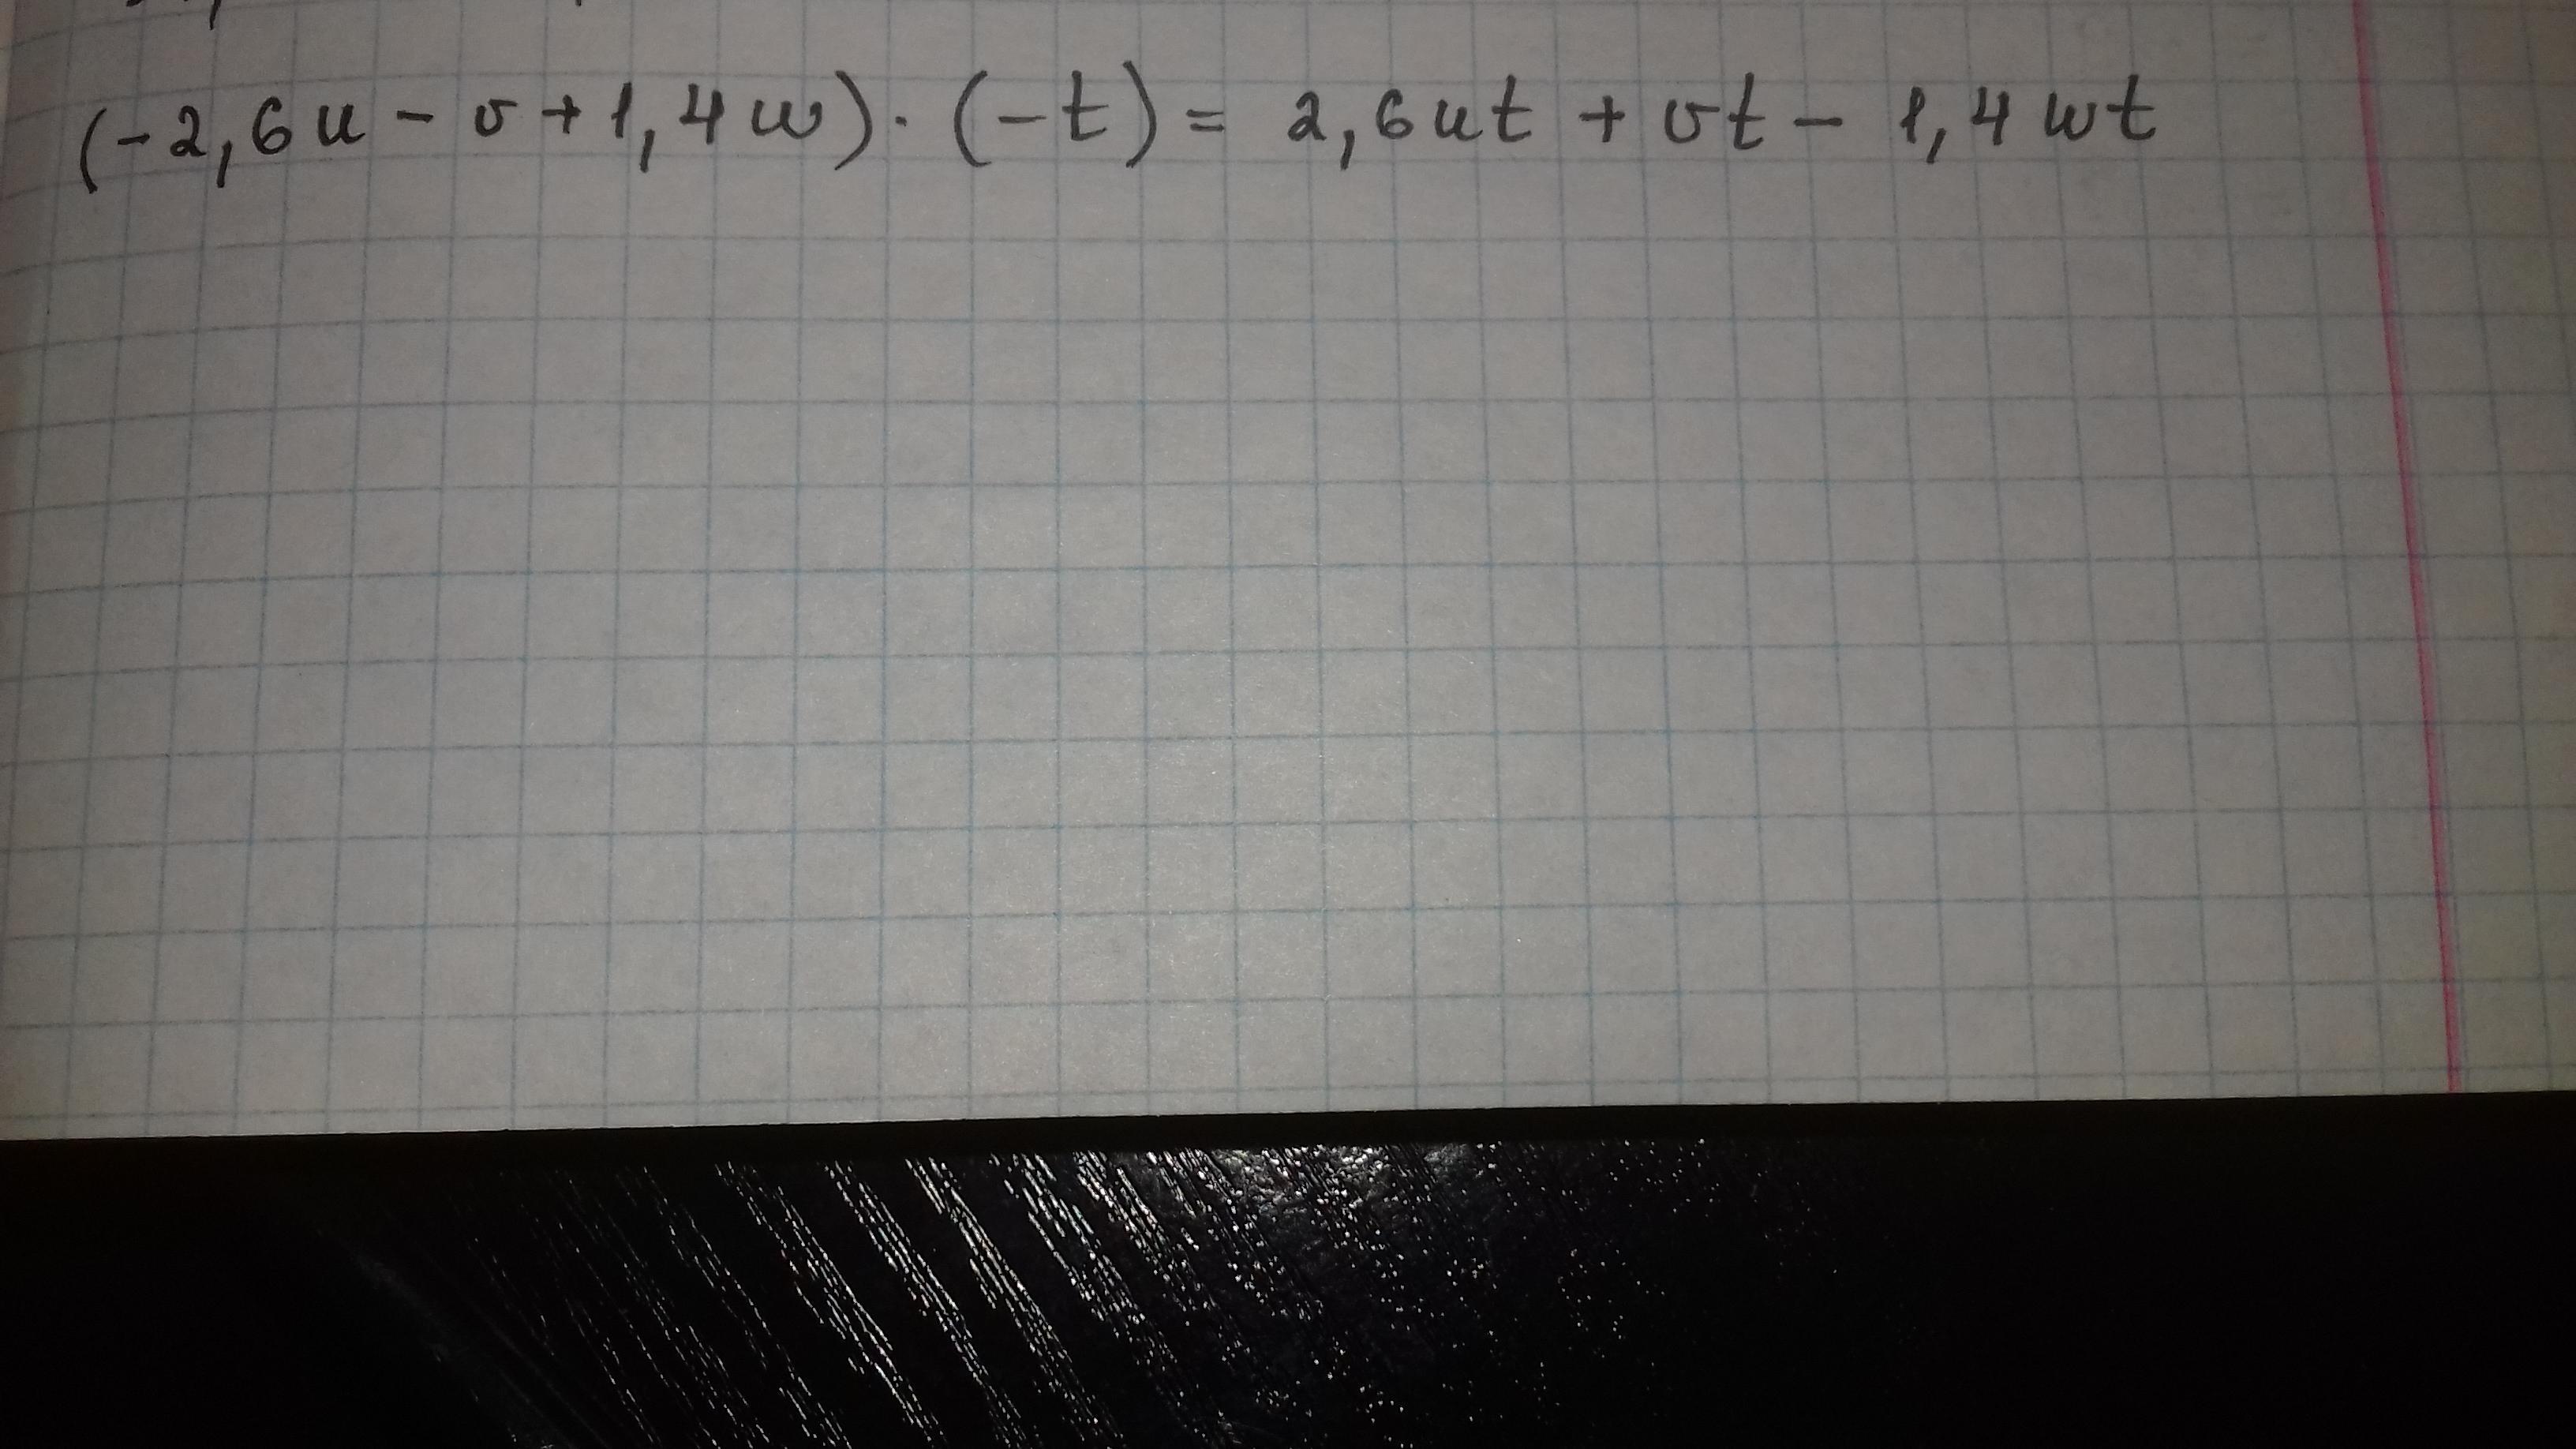 (-2,6u - v + 1,4w) · (-t) = 2,6ut + vt - 1,4wt